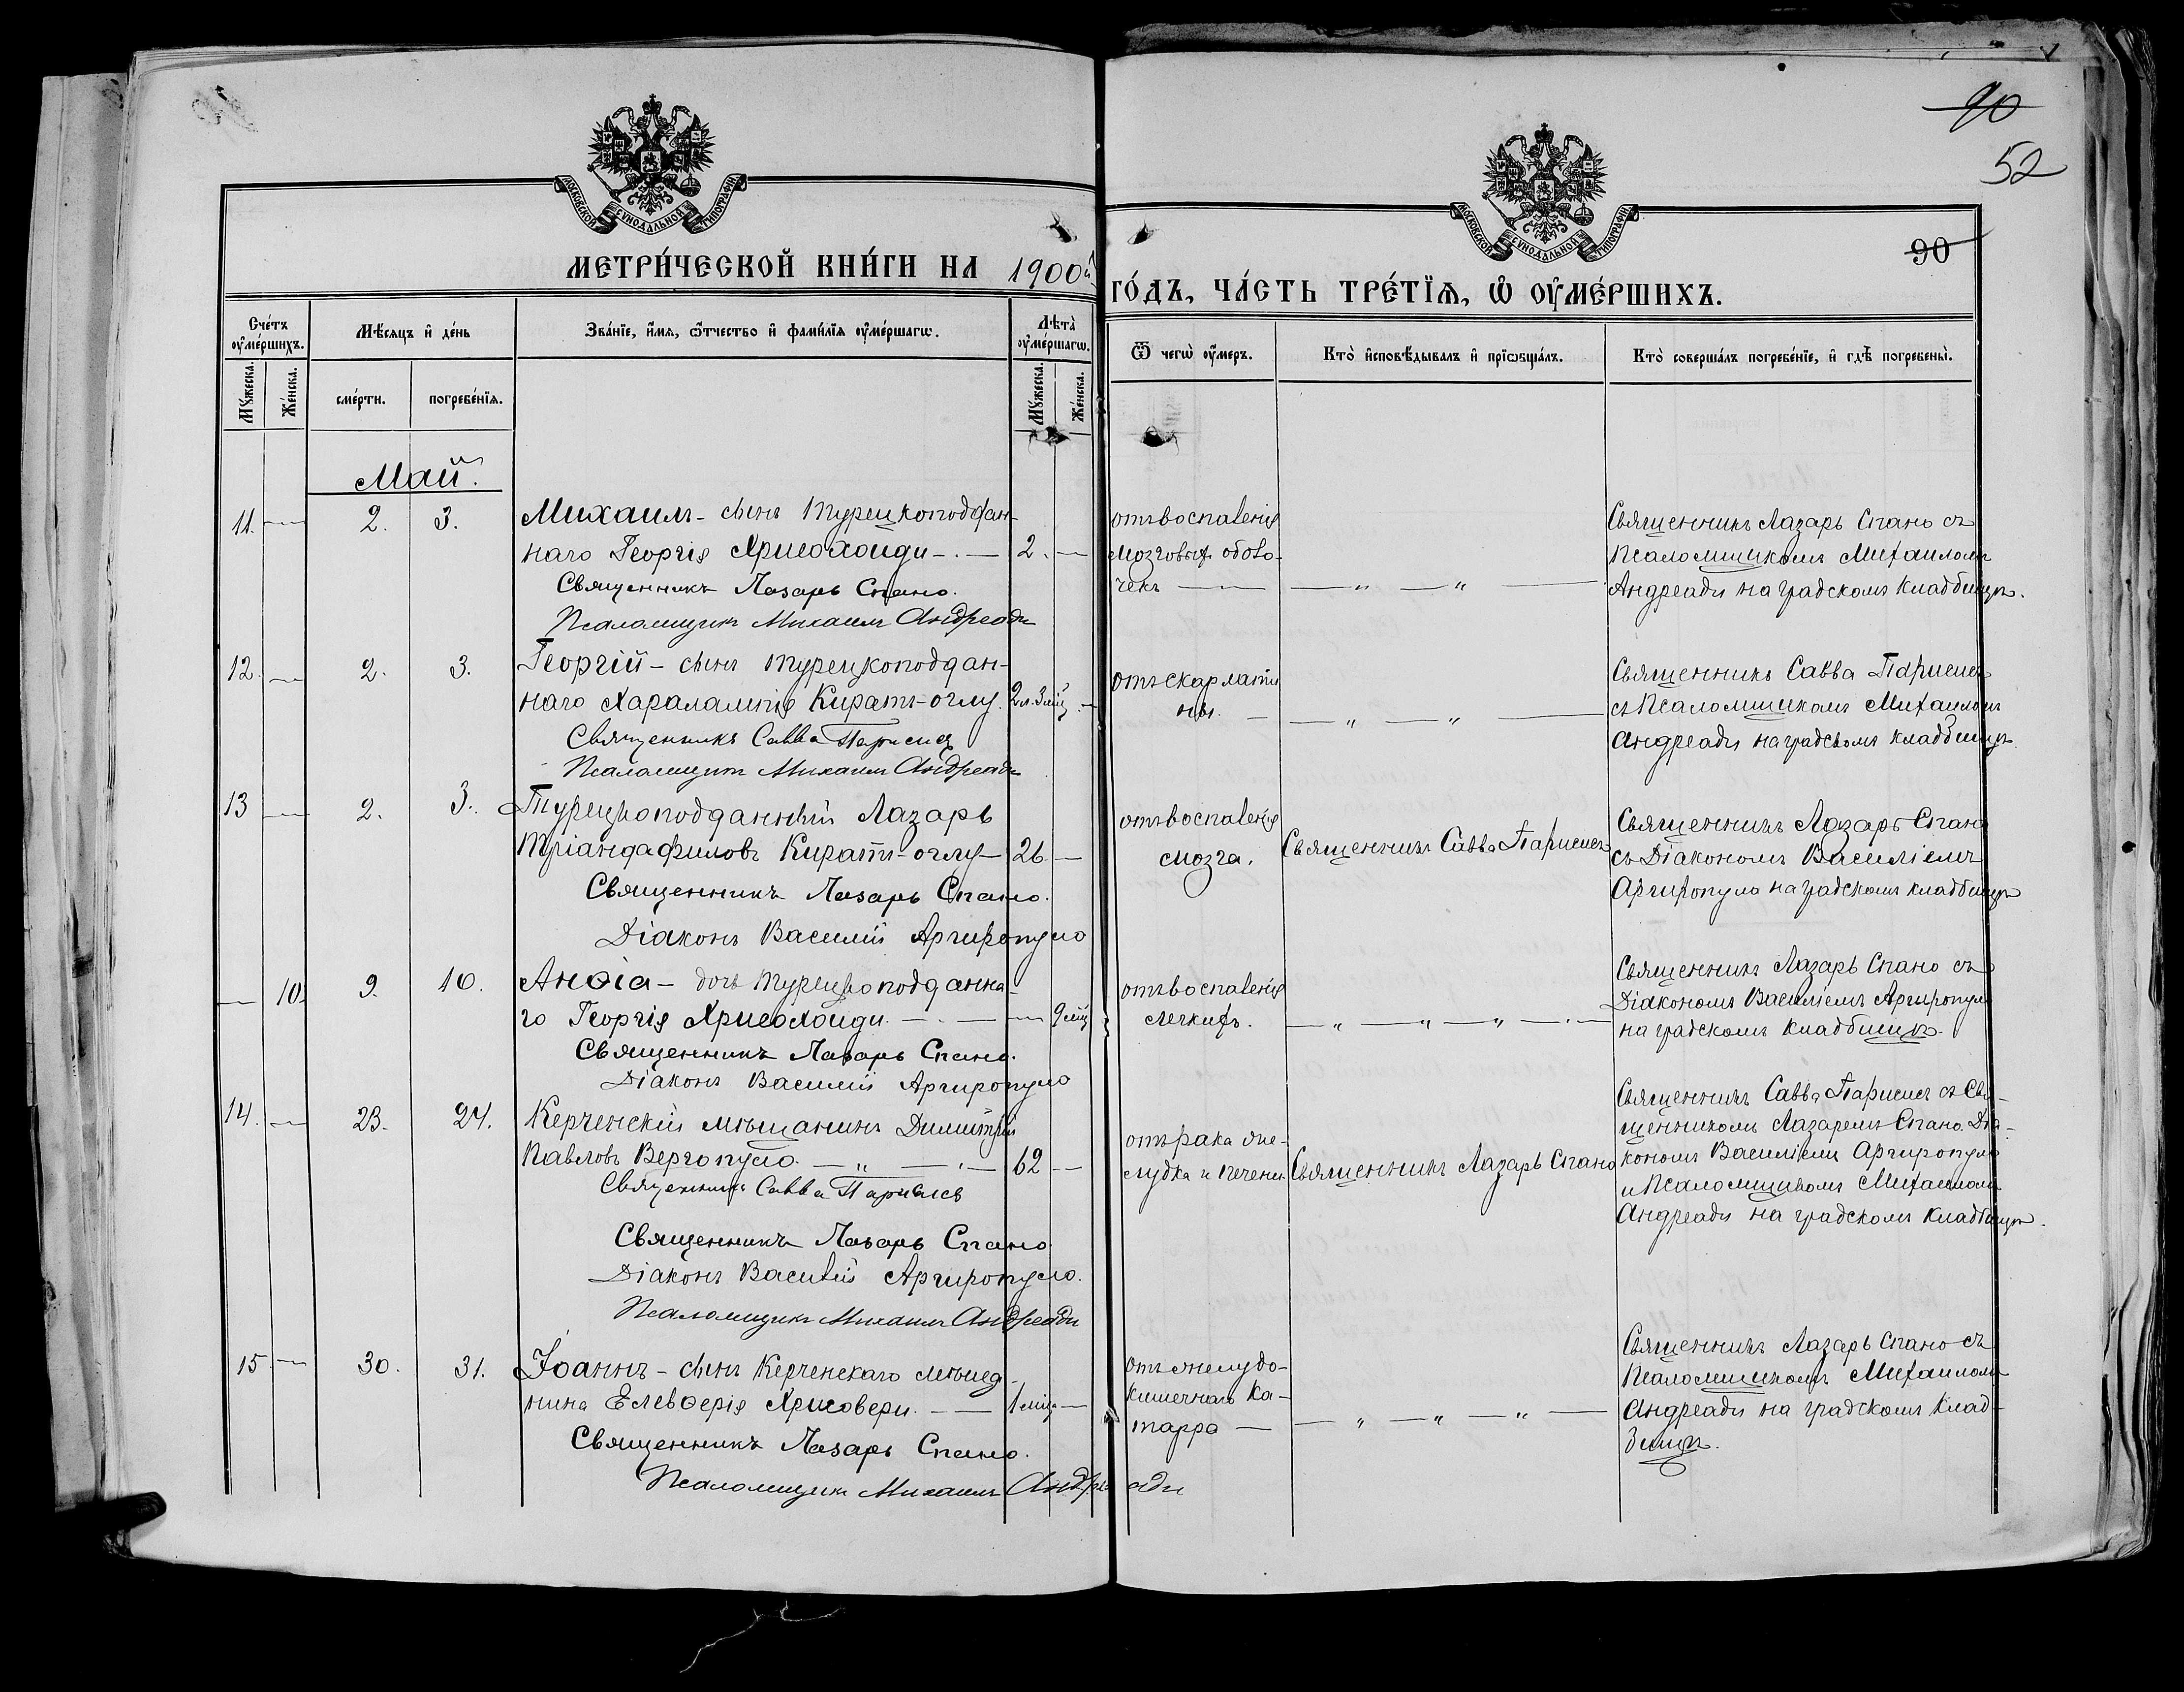 90
52
90
МОСКОВСКОЙ СѴНОДАЛЬНОЙ ТИПОГРАФІИ
МОСКОВСКОЙ СѴНОДАЛЬНОЙ ТИПОГРАФІИ
МЕТРИ́ЧЕСКОЙ КНИ́ГИ НА 1900й
ГО́ДЪ, ЧА́СТЬ ТРЕ́ТЇѦ, Ѡ҆ ОУ҆МЕ́РШИХЪ.
Сче́тъ оу҆ме́ршихъ.
Мꙋ́жеска.
Же́нска.
Мѣ́сяцъ и҆ де́нь
сме́рти.
погребе́нїѧ.
Зва́нїе, и҆́мѧ, ѻ҆́тчество и҆ фами́лїѧ оу҆ме́ршагѡ.
Лѣ́та оу҆ме́ршагѡ.
Мꙋ́жеска.
Же́нска.
Ѿ чегѡ̀ оу҆́меръ.
Кто̀ и҆сповѣ́дывалъ и҆ прїѡбща́лъ.
Кто̀ соверша́лъ погребе́нїе, и҆ гдѣ̀ погребены̀.
Май.
11. — 2. 3.
Михаилъ - сынъ турецкоподдан-
наго Георгія Хрисохоиди —.— 2. —
Священникъ Лазарь Спано.
Псаломщикъ Михаилъ Андреади
отъ воспаленія
мозговыхъ оболо-
чекъ —
— " — " —
Священникъ Лазарь Спано съ
Псаломщикомъ Михаиломъ
Андреади на градскомъ кладбищѣ.
12. — 2. 3.
Георгій - сынъ турецкоподдан-
наго Харалампія Киратъ-оглу. 2 л. 3 мѣц. —
Священникъ Савва Парисисъ
Псаломщикъ Михаилъ Андреади
отъ скарлати
ны. —
— " — " —
Священникъ Савва Парисисъ
съ Псаломщикомъ Михаиломъ
Андреади на градскомъ кладбищѣ.
13 — 2. 3.
Турецкоподданный Лазарь
Тріандафиловъ Киратъ-оглу — 26 —
Священникъ Лазарь Спано.
Діаконъ Василій Аргиропуло
отъ воспаленія
мозга.
Священникъ Савва Парисисъ
Священникъ Лазарь Спано
съ Діакономъ Василіемъ
Аргиропуло на градскомъ кладбищѣ
— 10. 9. 10.
Анѳіа - дочь турецкоподданна-
го Георгія Хрисохоиди. —.— — 9 мѣц
Священникъ Лазарь Спано.
Діаконъ Василій Аргиропуло
отъ воспаленія
легкихъ.
— " — " — " —.—
Священникъ Лазарь Спано съ
Діакономъ Василіемъ Аргиропуло
на градскомъ кладбищѣ.
14. — 23. 24.
Керченскій мѣщанинъ Димитрій
Павловъ Вергопуло. — " —.— 62 —
Священникъ Савва Парисисъ
Священникъ Лазарь Спано
Діаконъ Василій Аргиропуло.
Псаломщикъ Михаилъ Андреади
отъ рака же-
лудка и печени.
Священникъ Лазарь Спано
Священникъ Савва Парисисъ съ Свя-
щенникомъ Лазаремъ Спано. Діа-
кономъ Василіемъ Аргиропуло
и Псаломщикомъ Михаиломъ
Андреади на градскомъ кладбищѣ.
15 — 30. 31.
Іоаннъ - сынъ Керченскаго мѣща-
нина Елевѳерія Хрисовери. — — 1 мѣц —
Священникъ Лазарь Спано.
Псаломщикъ Михаилъ Андреади
отъ желудо-
кишечнаго ка-
тарра —
— " — " — " —
Священникъ Лазарь Спано съ
Псаломщикомъ Михаиломъ
Андреади на градскомъ клад-
бищѣ.